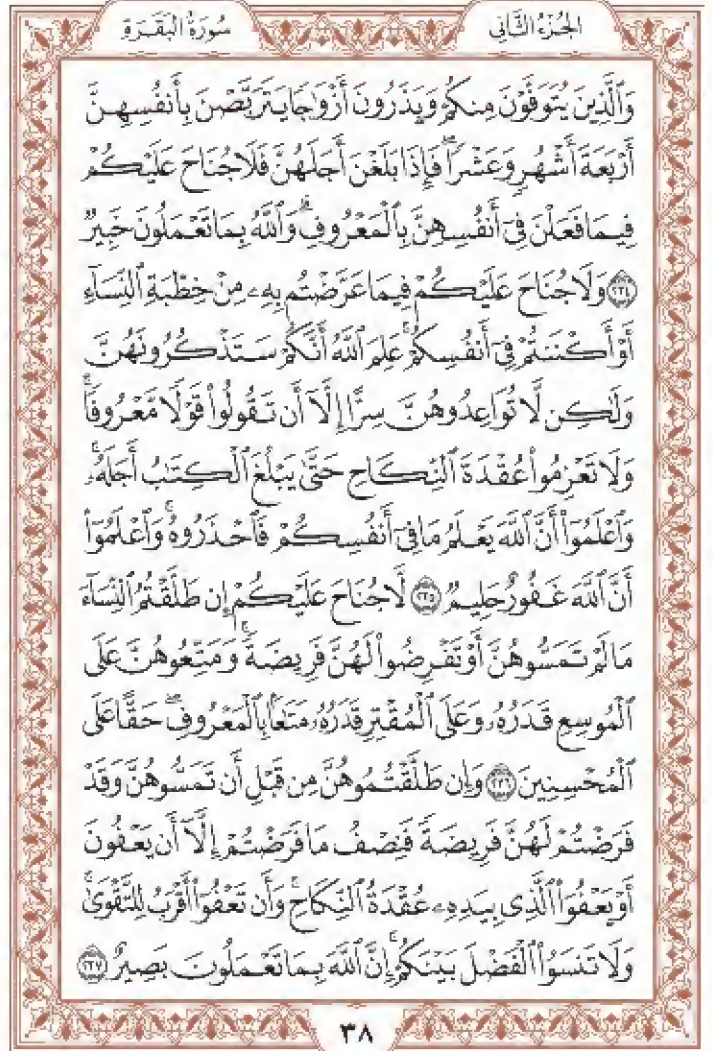 الجُزْءُ الثَّانِي سُورَةُ البَقَرَةِ
وَٱلَّذِينَ يُتَوَفَّوْنَ مِنكُمْ وَيَذَرُونَ أَزْوَٰجًا يَتَرَبَّصْنَ بِأَنفُسِهِنَّ
أَرْبَعَةَ أَشْهُرٍ وَعَشْرًا ۖ فَإِذَا بَلَغْنَ أَجَلَهُنَّ فَلَا جُنَاحَ عَلَيْكُمْ
فِيمَا فَعَلْنَ فِىٓ أَنفُسِهِنَّ بِٱلْمَعْرُوفِ ۗ وَٱللَّهُ بِمَا تَعْمَلُونَ خَبِيرٌ
٢٣٤ وَلَا جُنَاحَ عَلَيْكُمْ فِيمَا عَرَّضْتُم بِهِۦ مِنْ خِطْبَةِ ٱلنِّسَآءِ
أَوْ أَكْنَنتُمْ فِىٓ أَنفُسِكُمْ ۚ عَلِمَ ٱللَّهُ أَنَّكُمْ سَتَذْكُرُونَهُنَّ
وَلَٰكِن لَّا تُوَاعِدُوهُنَّ سِرًّا إِلَّآ أَن تَقُولُوا۟ قَوْلًا مَّعْرُوفًا ۚ
وَلَا تَعْزِمُوا۟ عُقْدَةَ ٱلنِّكَاحِ حَتَّىٰ يَبْلُغَ ٱلْكِتَٰبُ أَجَلَهُۥ ۚ
وَٱعْلَمُوٓا۟ أَنَّ ٱللَّهَ يَعْلَمُ مَا فِىٓ أَنفُسِكُمْ فَٱحْذَرُوهُ ۚ وَٱعْلَمُوٓا۟
أَنَّ ٱللَّهَ غَفُورٌ حَلِيمٌ ٢٣٥ لَّا جُنَاحَ عَلَيْكُمْ إِن طَلَّقْتُمُ ٱلنِّسَآءَ
مَا لَمْ تَمَسُّوهُنَّ أَوْ تَفْرِضُوا۟ لَهُنَّ فَرِيضَةً ۚ وَمَتِّعُوهُنَّ عَلَى
ٱلْمُوسِعِ قَدَرُهُۥ وَعَلَى ٱلْمُقْتِرِ قَدَرُهُۥ مَتَٰعًۢا بِٱلْمَعْرُوفِ ۖ حَقًّا عَلَى
ٱلْمُحْسِنِينَ ٢٣٦ وَإِن طَلَّقْتُمُوهُنَّ مِن قَبْلِ أَن تَمَسُّوهُنَّ وَقَدْ
فَرَضْتُمْ لَهُنَّ فَرِيضَةً فَنِصْفُ مَا فَرَضْتُمْ إِلَّآ أَن يَعْفُونَ
أَوْ يَعْفُوَا۟ ٱلَّذِى بِيَدِهِۦ عُقْدَةُ ٱلنِّكَاحِ ۚ وَأَن تَعْفُوٓا۟ أَقْرَبُ لِلتَّقْوَىٰ ۚ
وَلَا تَنسَوُا۟ ٱلْفَضْلَ بَيْنَكُمْ ۚ إِنَّ ٱللَّهَ بِمَا تَعْمَلُونَ بَصِيرٌ ٢٣٧
٣٨